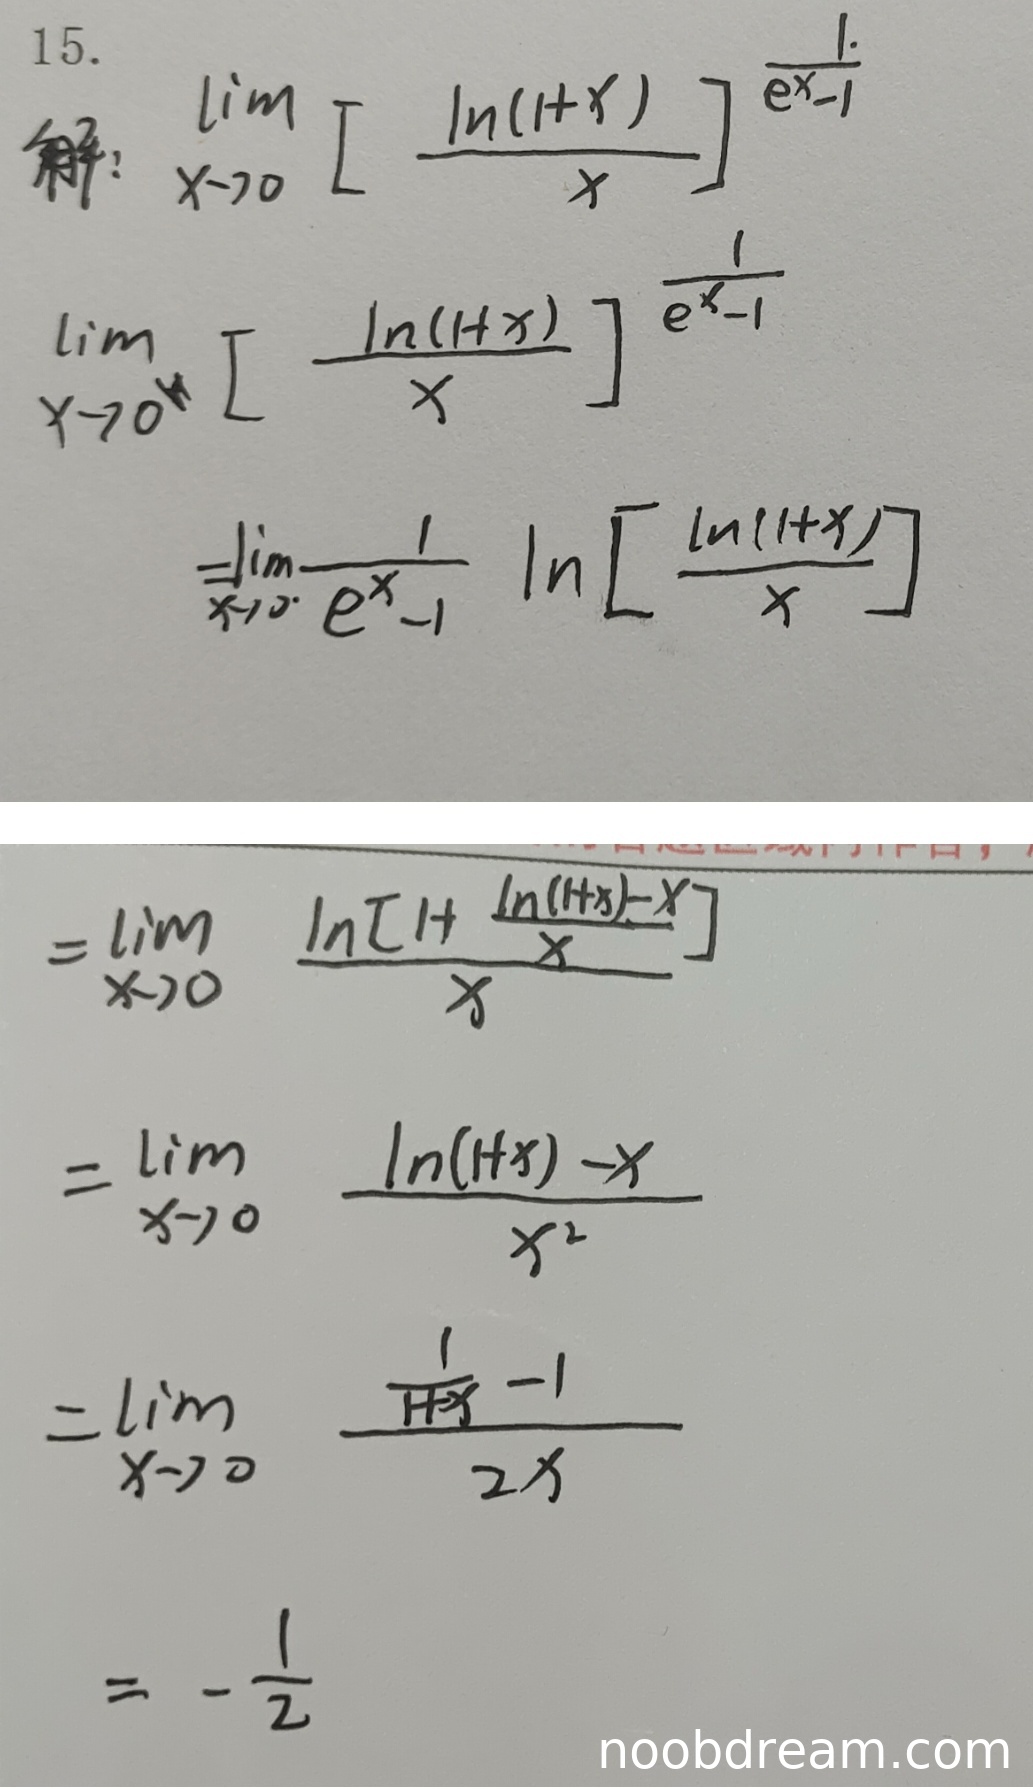 15.
解: lim x→0 [ ln(1+x) / x ]^(1 / (e^x-1))
lim x→0 [ ln(1+x) / x ]^(1 / (e^x-1))
= lim x→0 1 / (e^x-1) ln[ ln(1+x) / x ]
= lim x→0 ln[1+ (ln(1+x)-x) / x ] / x
= lim x→0 (ln(1+x) -x) / x²
= lim x→0 (1/(1+x) -1) / 2x
= - 1/2
noobdream.com